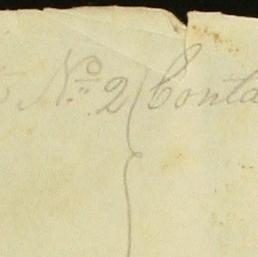 No 2 Conta